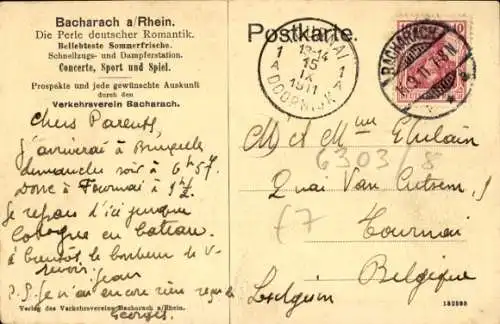 Bacharach a/Rhein.
Die Perle deutscher Romantik.
Beliebteste Sommerfrische.
Schnellzugs- und Dampferstation.
Concerte, Sport und Spiel.
Prospekte und jede gewünschte Auskunft
durch den
Verkehrsverein Bacharach.
Postkarte.
TOURNAI
13-14
15
IX
1911
DOORNIJK
1 A
1 A
BACHARACH
10
Chers Parents,
J'arriverai à Bruxelles
dimanche soir à 6h57
Donc à Tournai à
Je repars d'ici jusque
Cologne en bateau.
à bientôt le bonheur de v.
revoir. Jean
P.S. Je n'ai encore rien reçu de
Georges.
M et Mme
6303/8
Quai Van Cutsem,
F7
Tournai
Belgique
Belgien
Verlag des Verkehrsvereins Bacharach a/Rhein.